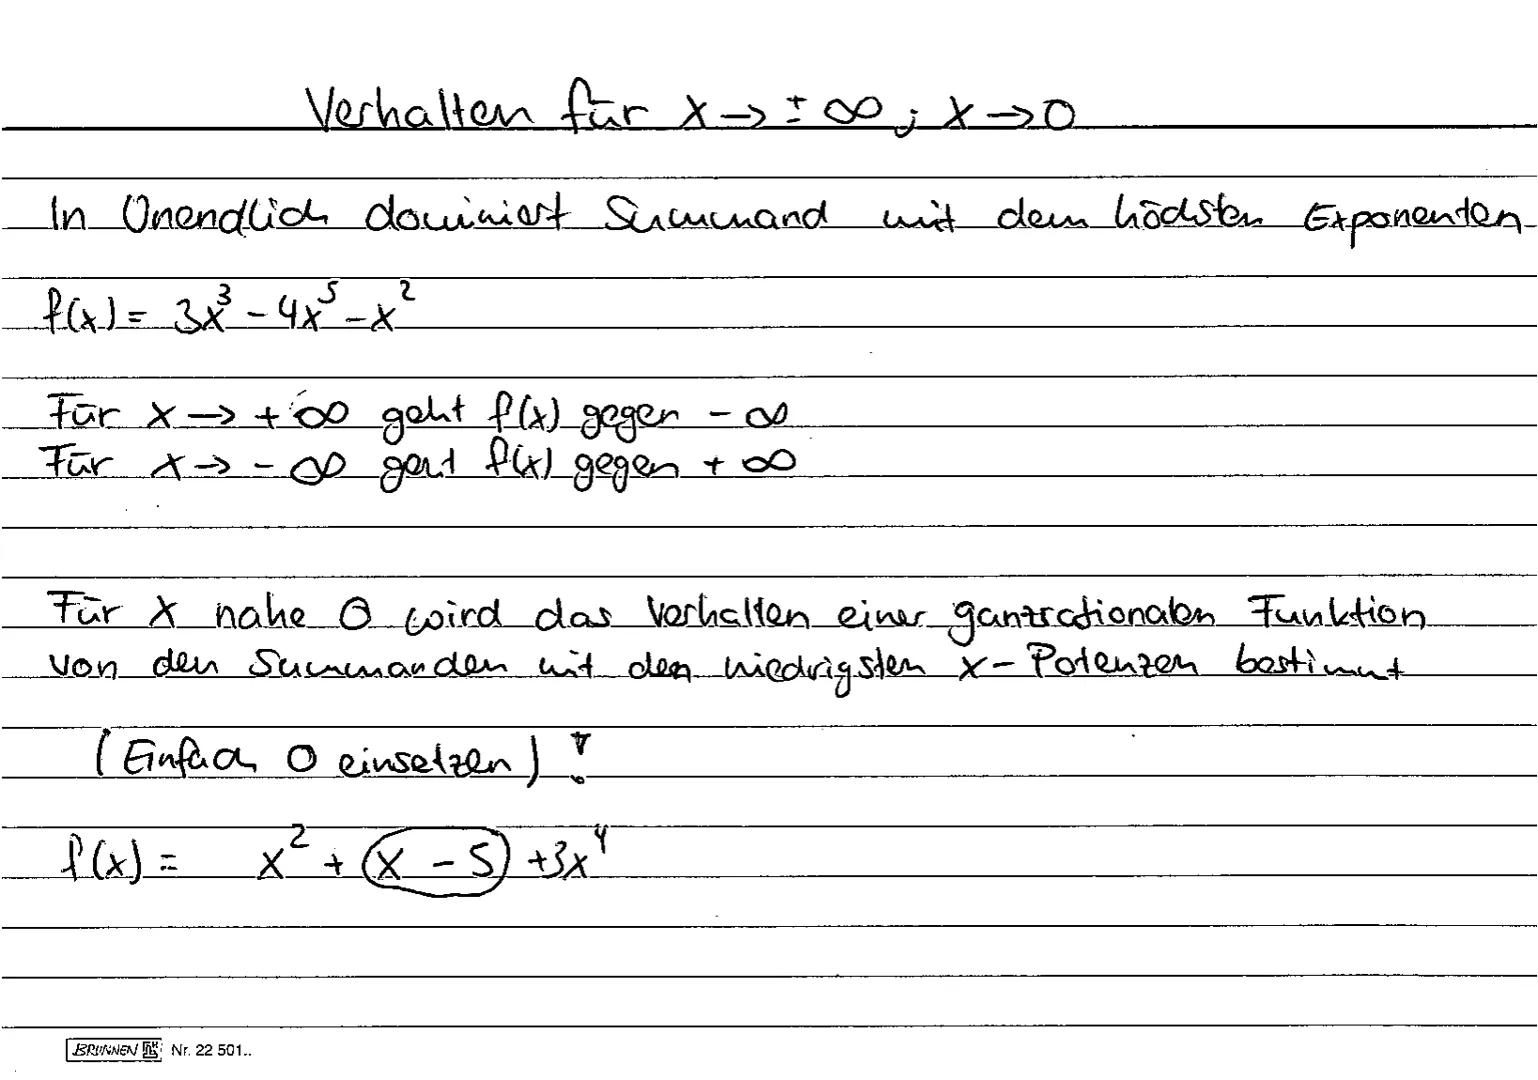 Verhalten für x → ± ∞ ; x → 0
In Unendlich dominiert Summand mit dem höchsten Exponenten
f(x) = 3x³ - 4x⁵ - x²
Für x → + ∞ geht f(x) gegen - ∞
Für x → - ∞ geht f(x) gegen + ∞
Für x nahe 0 wird das Verhalten einer ganzrationalen Funktion
von den Summanden mit den niedrigsten x-Potenzen bestimmt
(Einfach 0 einsetzen) !
f(x) = x² + x - 5 + 3x⁴
BRUNNEN Nr. 22 501..